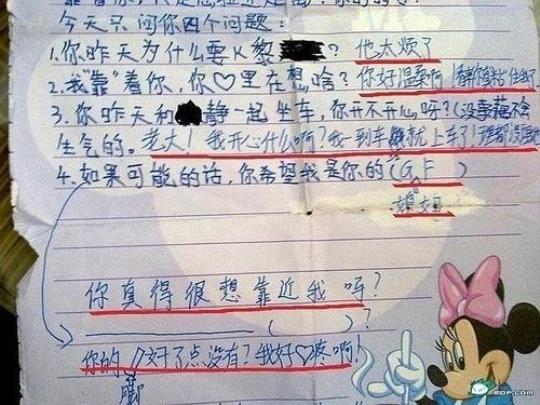 今天只问你四个问题：
1.你昨天为什么要K黎？他太烦了
2.我“靠”着你，你♡里在想啥？你好温柔啊！
3.你昨天和静一起坐车，你开不开心呀？（没事我不会
生气的。老大！我开心什么啊？我一到车就上车了！
4.如果可能的话，你希望我是你的（G.F）
姐姐
你真得很想靠近我吗？
（ ）？
你的 好了点没有？我好♡疼啊！
脚